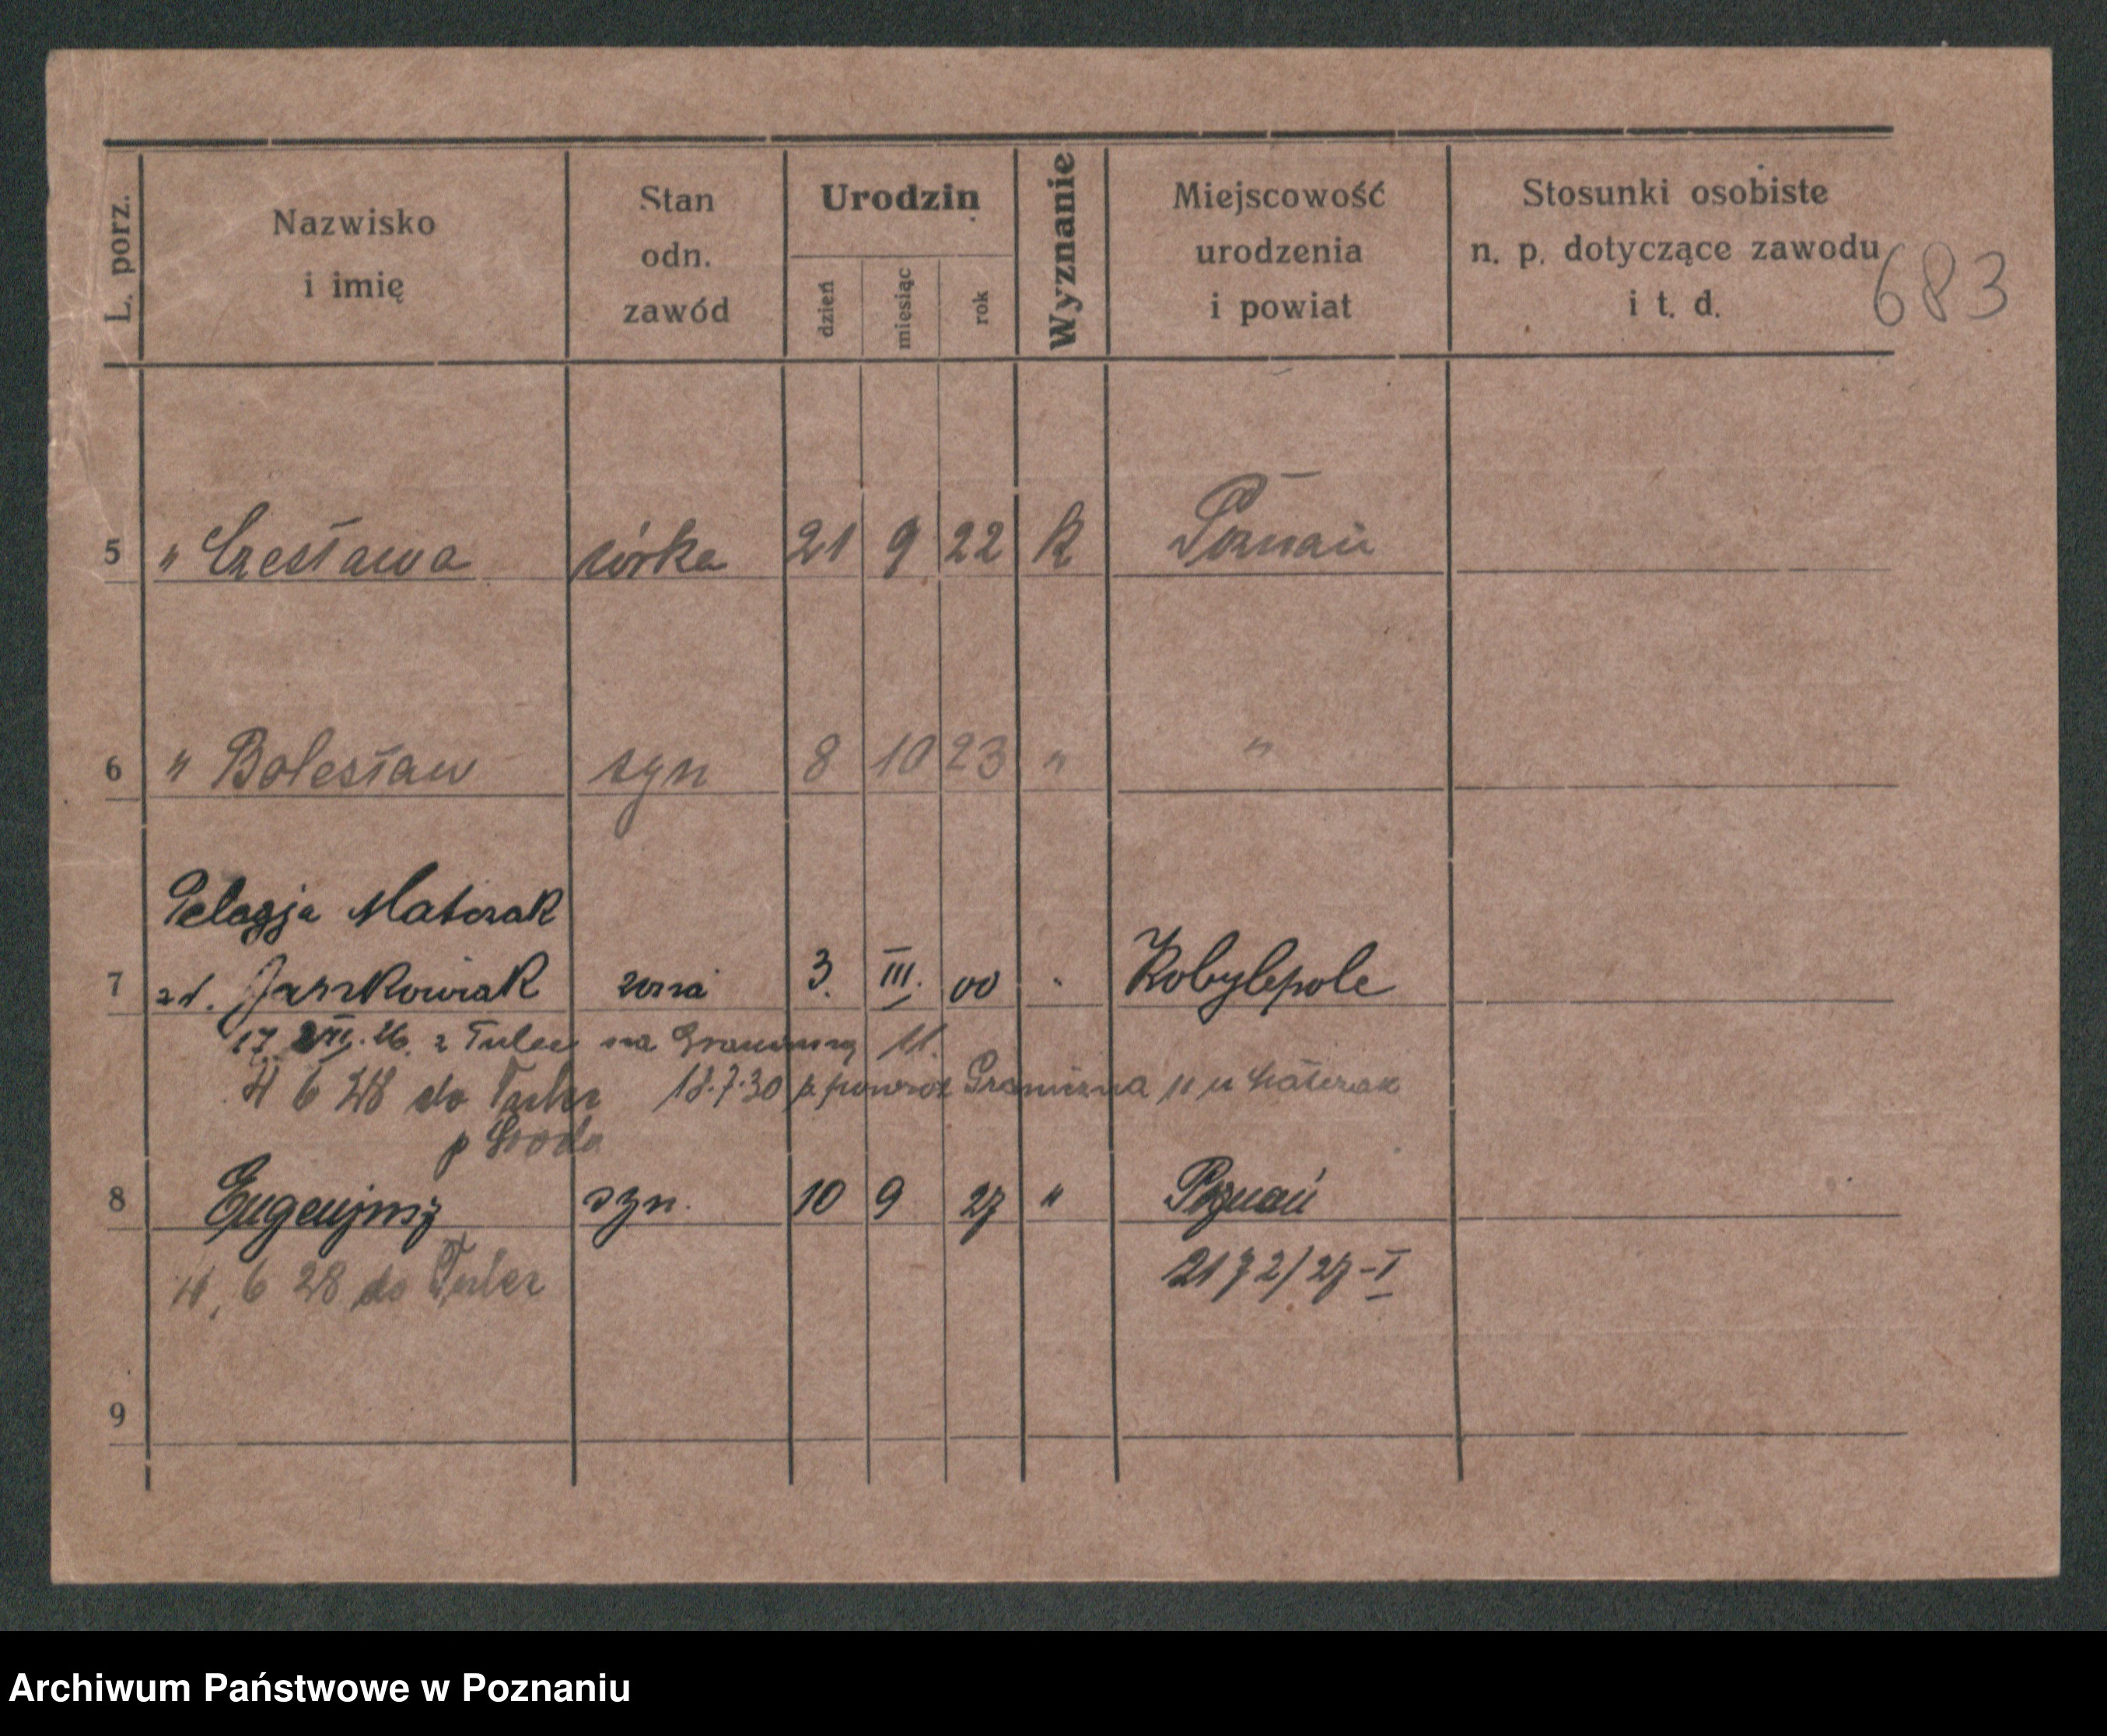 L. porz.
Nazwisko
i imię
Stan
odn.
zawód
Urodzin
dzień
miesiąc
rok
Wyznanie
Miejscowość
urodzenia
i powiat
Stosunki osobiste
n. p. dotyczące zawodu
i t. d.
683
5 " Czesława córka 21 9 22 k Poznań
6 " Bolesław syn 8 10 23 " "
Pelagja Matczak
7 zd. Jaszkowiak żona 3. III. 00 Kobylepole
17. 26. z Tulec na Graniczną 11.
4 6 28 do Tulec 18.7.30 z powrot Graniczna 11 u Matczak
p Środa
8 Eugenjusz syn. 10 9 27 " Poznań
4, 6 28 do Tulec 2172/27-I
9
Archiwum Państwowe w Poznaniu